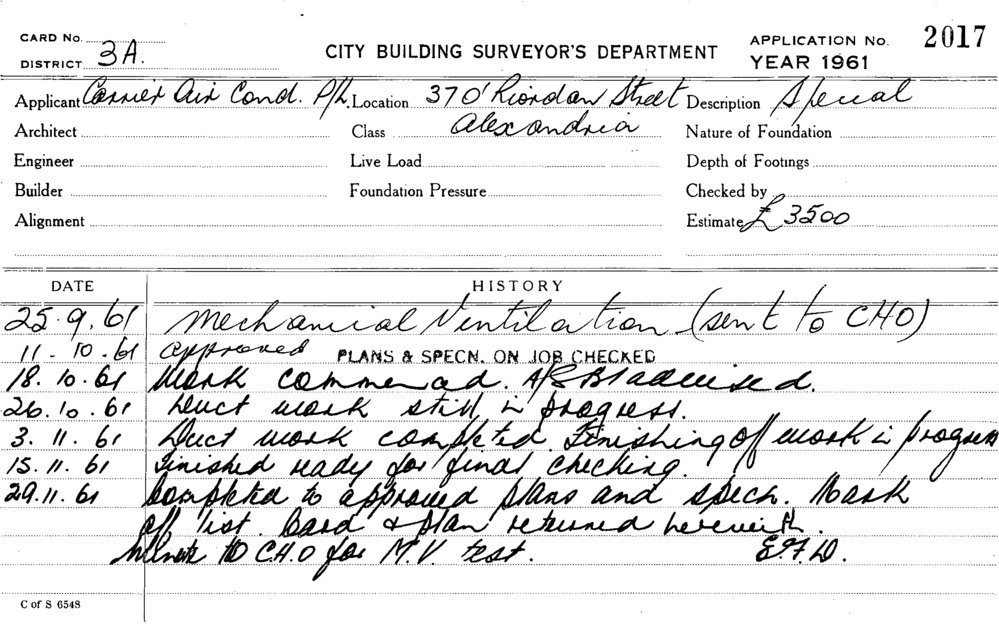 CARD No.
DISTRICT 3A.
CITY BUILDING SURVEYOR'S DEPARTMENT
APPLICATION No. 2017
YEAR 1961
Applicant Carrier Air Cond. P/L Location 370 Riordan Street Description Special
Architect Class Alexandria Nature of Foundation
Engineer Live Load Depth of Footings
Builder Foundation Pressure Checked by
Alignment Estimate £ 3500
DATE HISTORY
25.9.61 Mechanical Ventilation (sent to CHO)
11.10.61 approved PLANS & SPECN. ON JOB CHECKED
18.10.61 Work commenced. advised.
26.10.61 Duct work still in progress.
3.11.61 Duct work completed. Finishing off work in progress
15.11.61 Finished ready for final checking.
29.11.61 Completed to approved plans and specn. Mark
off list. Card & plan returned herewith.
Minute to C.H.O for M.V. test. E.F.D.
C of S 6548